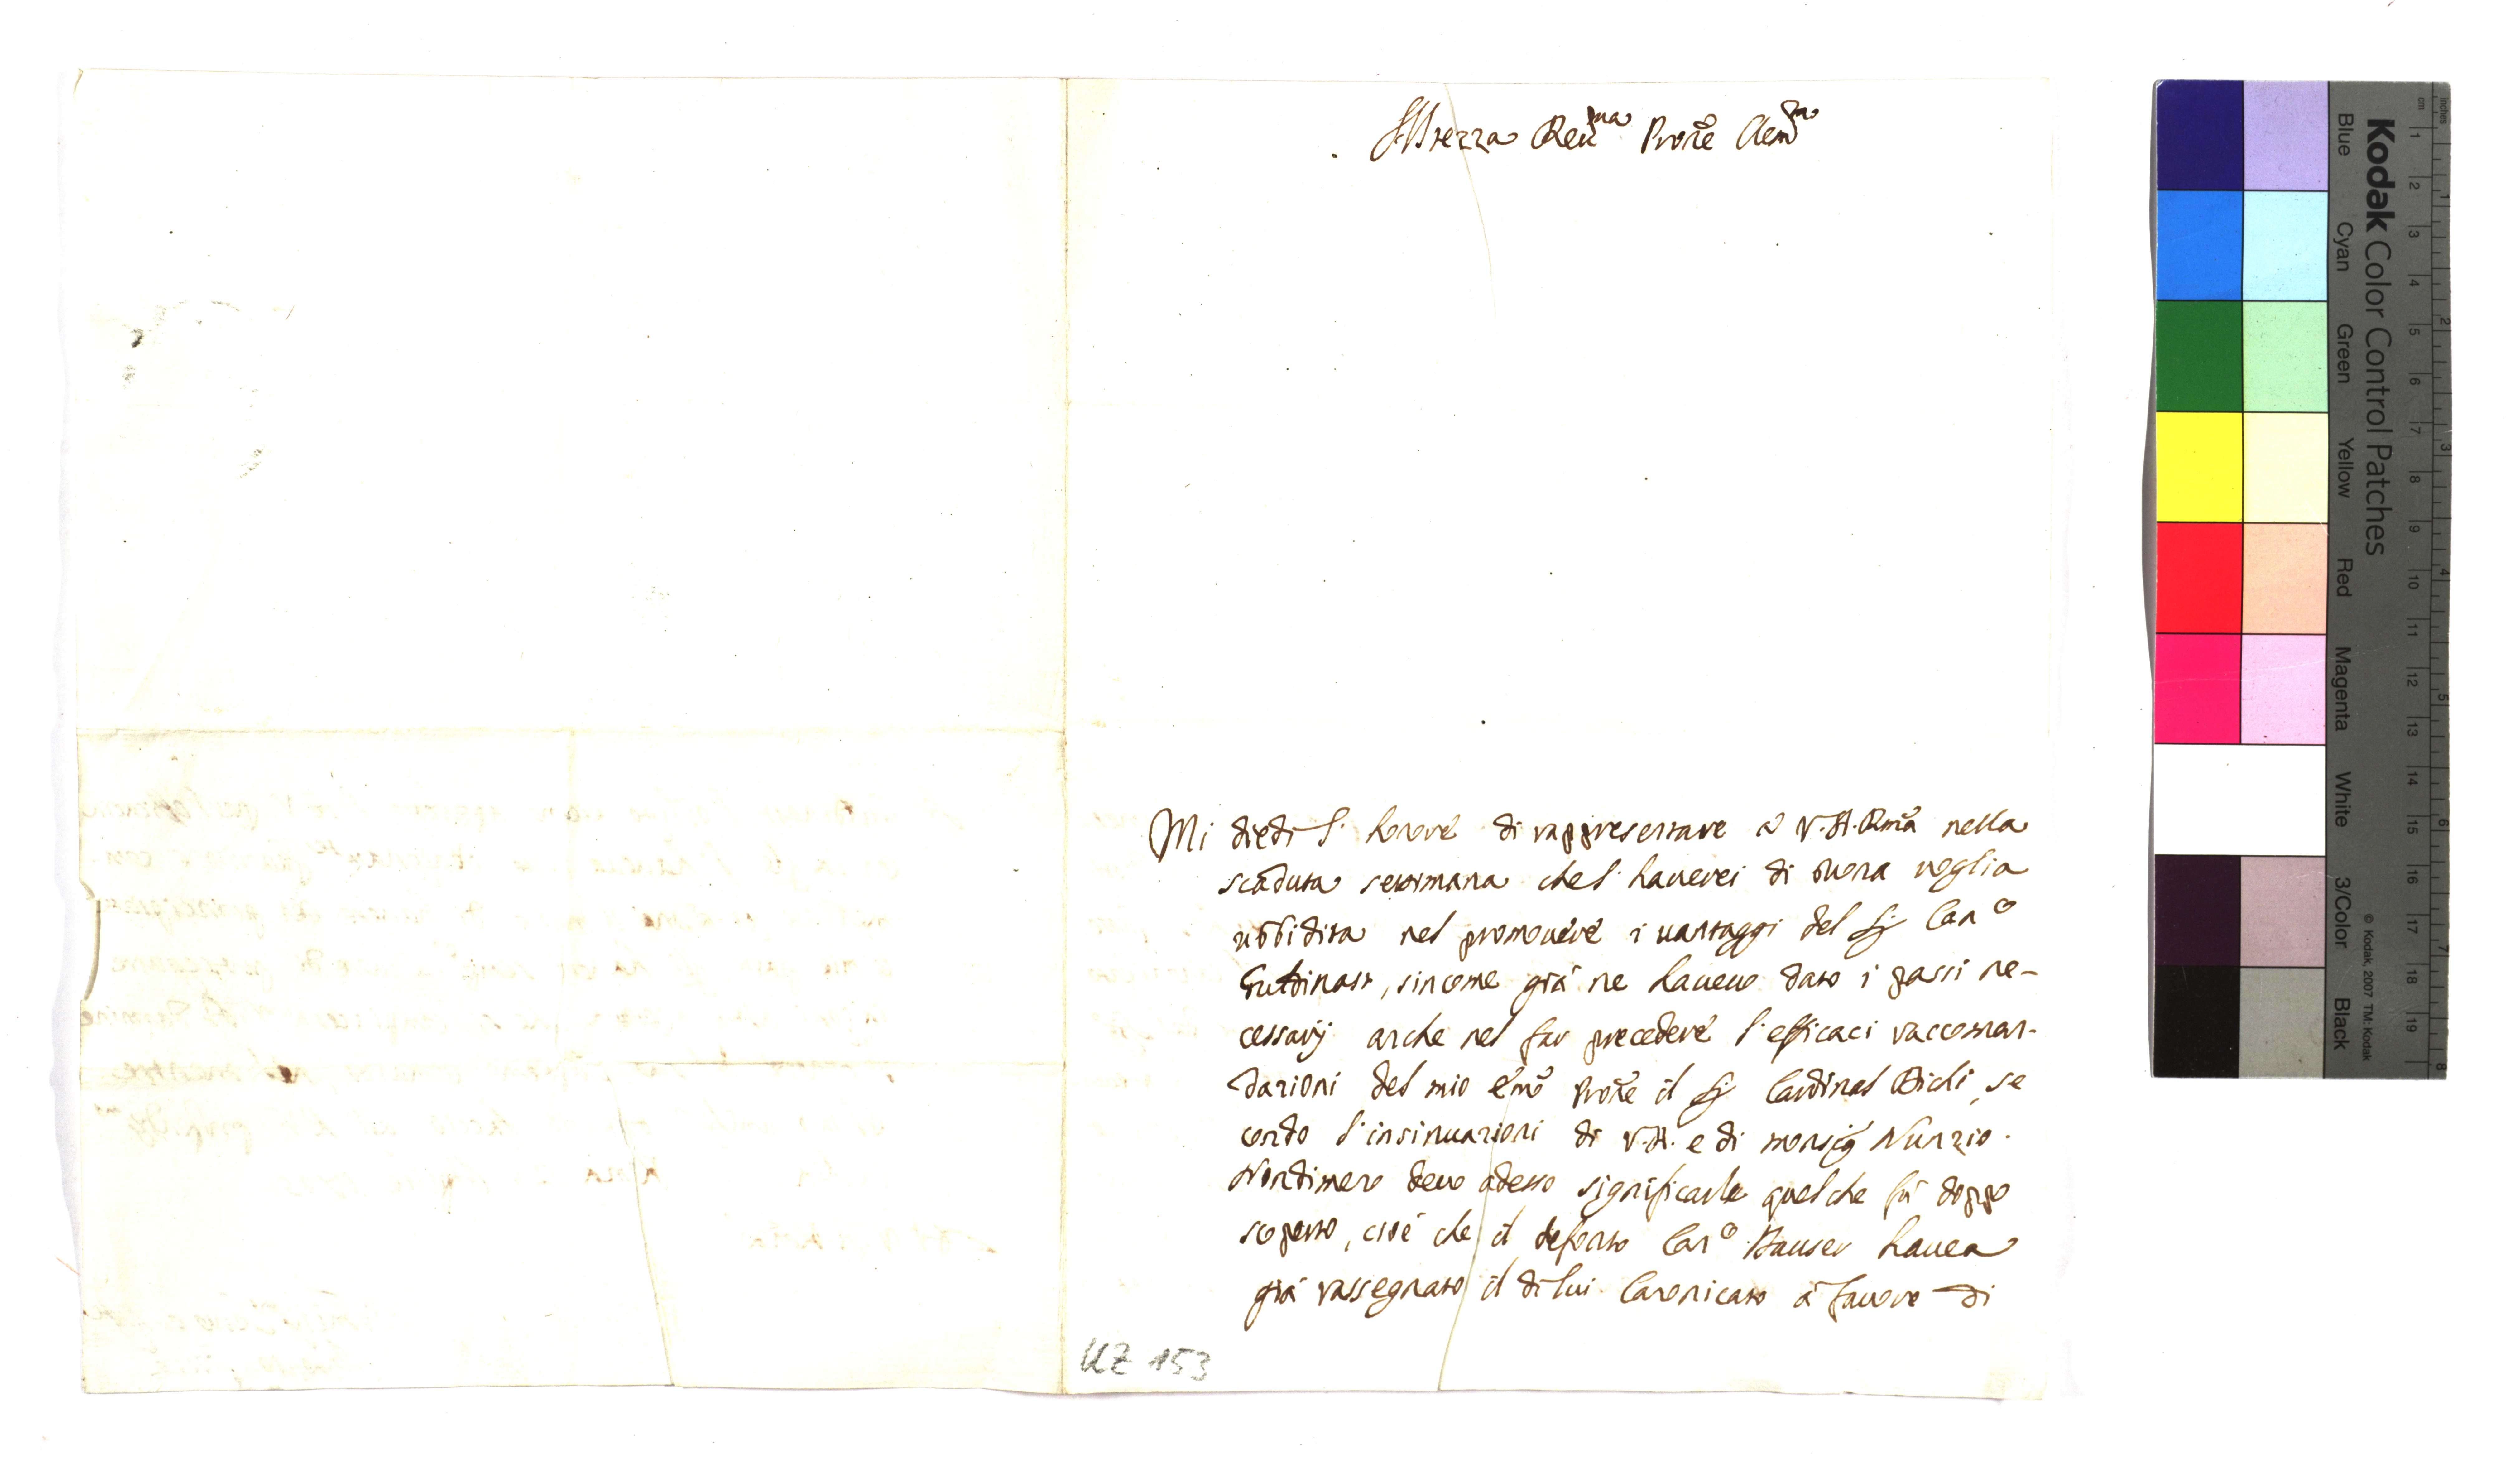 Altezza Reu.ma Prōne Clem.ma
Mi diedi l' honore di rappresentare à V.A. Rmā nella
scaduta settimana che l' hauerei di buona voglia
ubbidita nel promouere i uantaggi del Sig Can.co
Guldinast, sincome già ne haueuo dato i passi ne-
cessarij anche nel far precedere l'efficaci raccoman-
dazioni del mio Emō Prōne il Sig Cardinal Bichi, se
condo l'insinuazioni di V.A. e di monsig Nunzio.
Nondimeno deuo adesso significarle quel che fù doppo
scoperto, cioè che il defonto Can.co Hauser hauea
già rassegnato il di lui Canonicato à fauore di
UZ 153
Kodak Color Control Patches
Blue Cyan Green Yellow Red Magenta White 3/Color Black
© Kodak, 2007 TM: Kodak
inches 1 2 3 4 5 6 7 8
cm 1 2 3 4 5 6 7 8 9 10 11 12 13 14 15 16 17 18 19